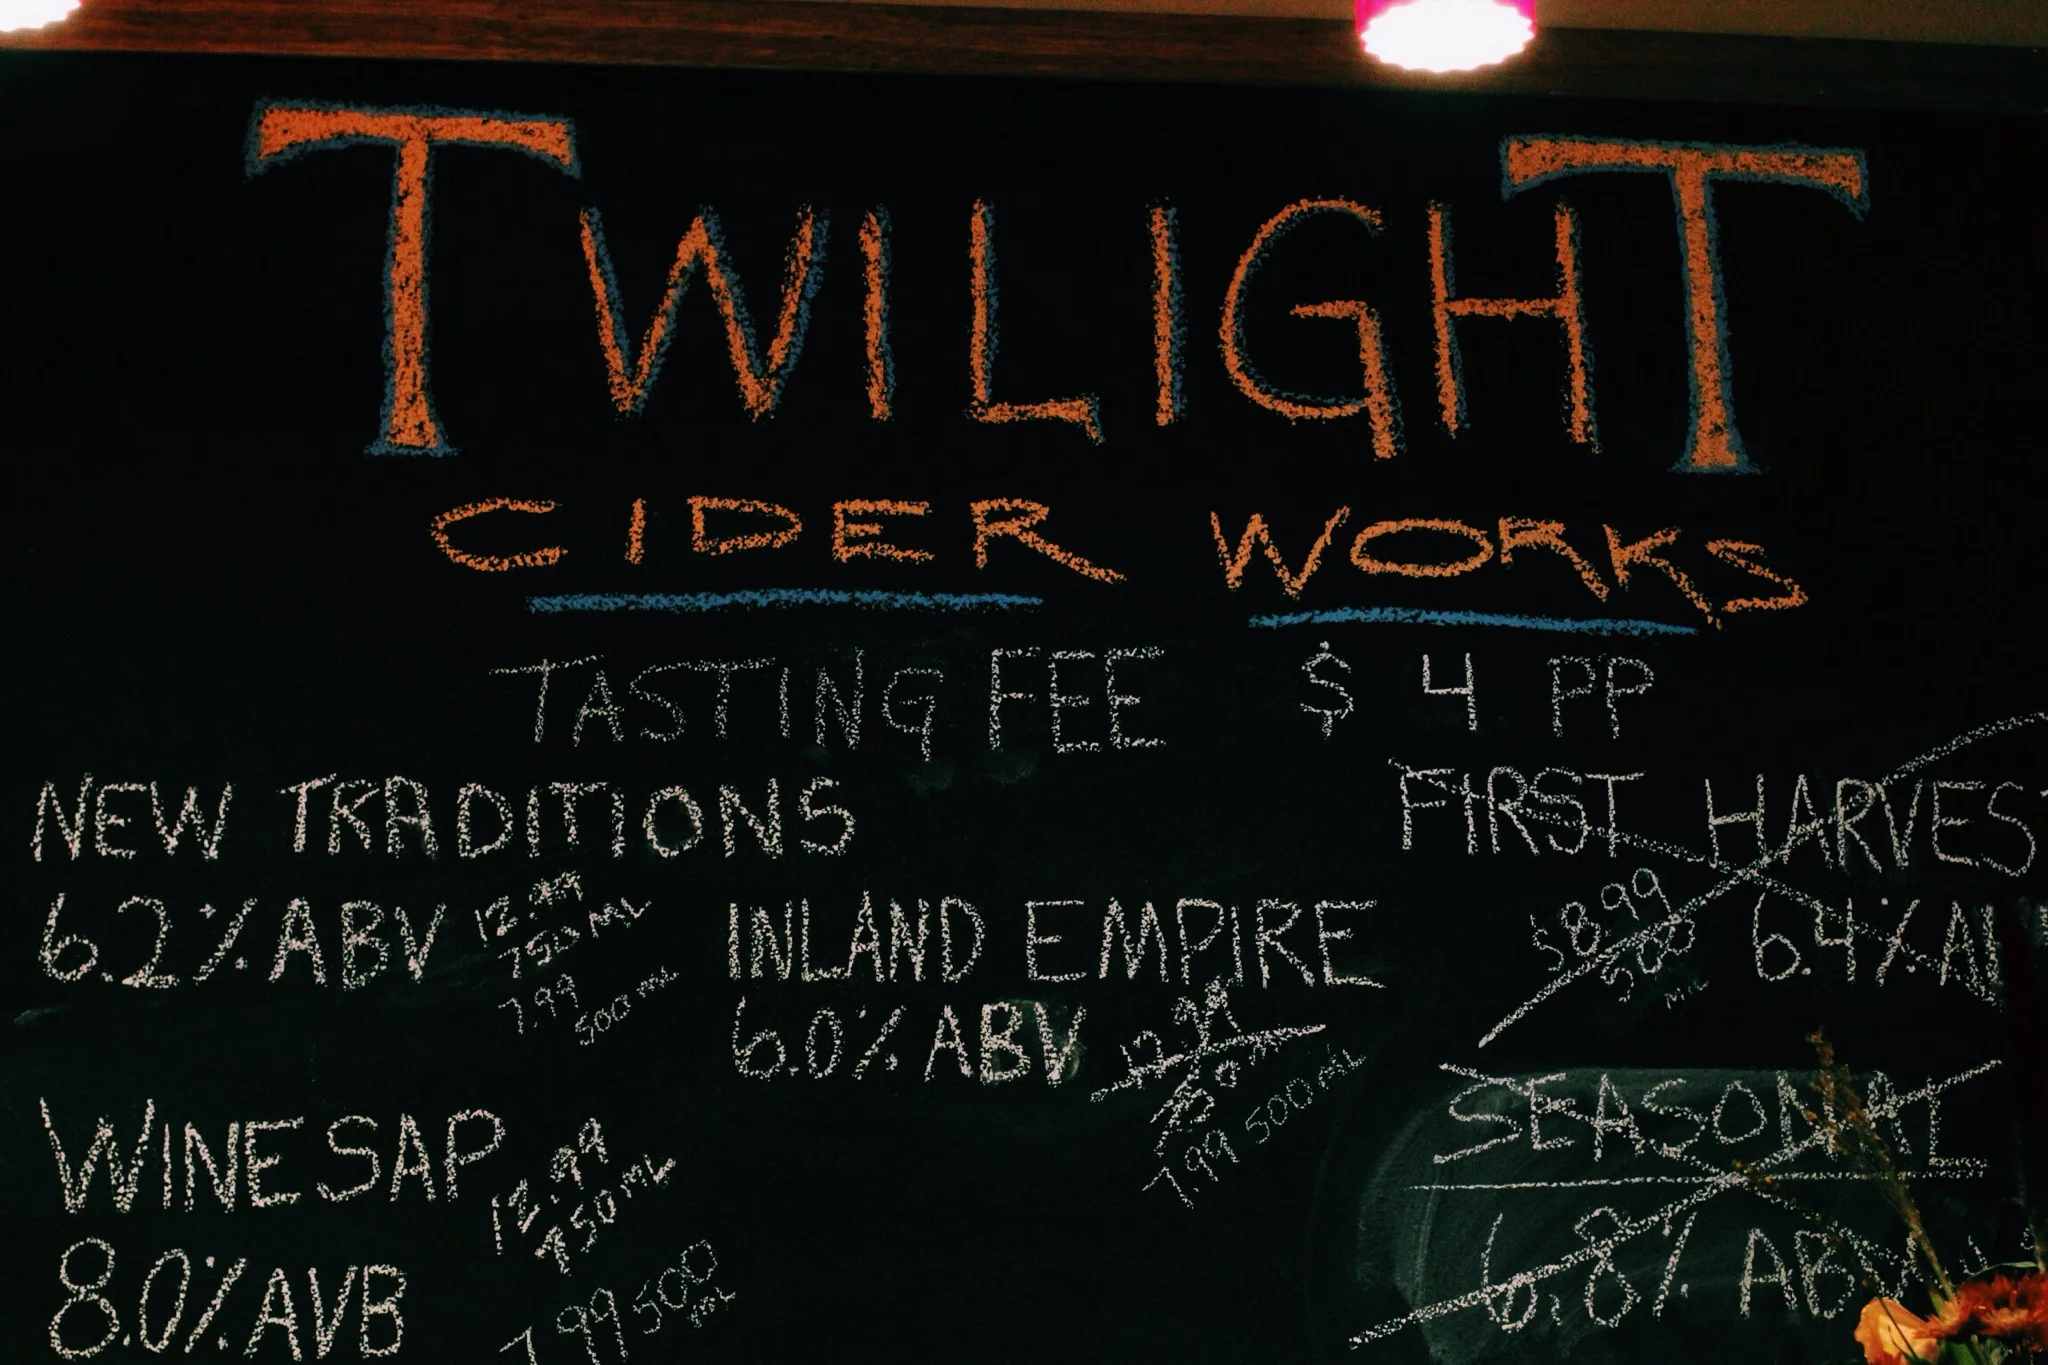 TWILIGHT
CIDER WORKS
TASTING FEE $4 PP
NEW TRADITIONS
6.2% ABV
12.99
750 ML
7.99
500 ML
INLAND EMPIRE
6.0% ABV
12.99
750
7.99 500 ML
WINESAP
8.0% AVB
12.99
750 ML
7.99 500
ML
FIRST HARVEST
$8.99
500
ML
6.4% AB
SEASONAL
6.8% ABV